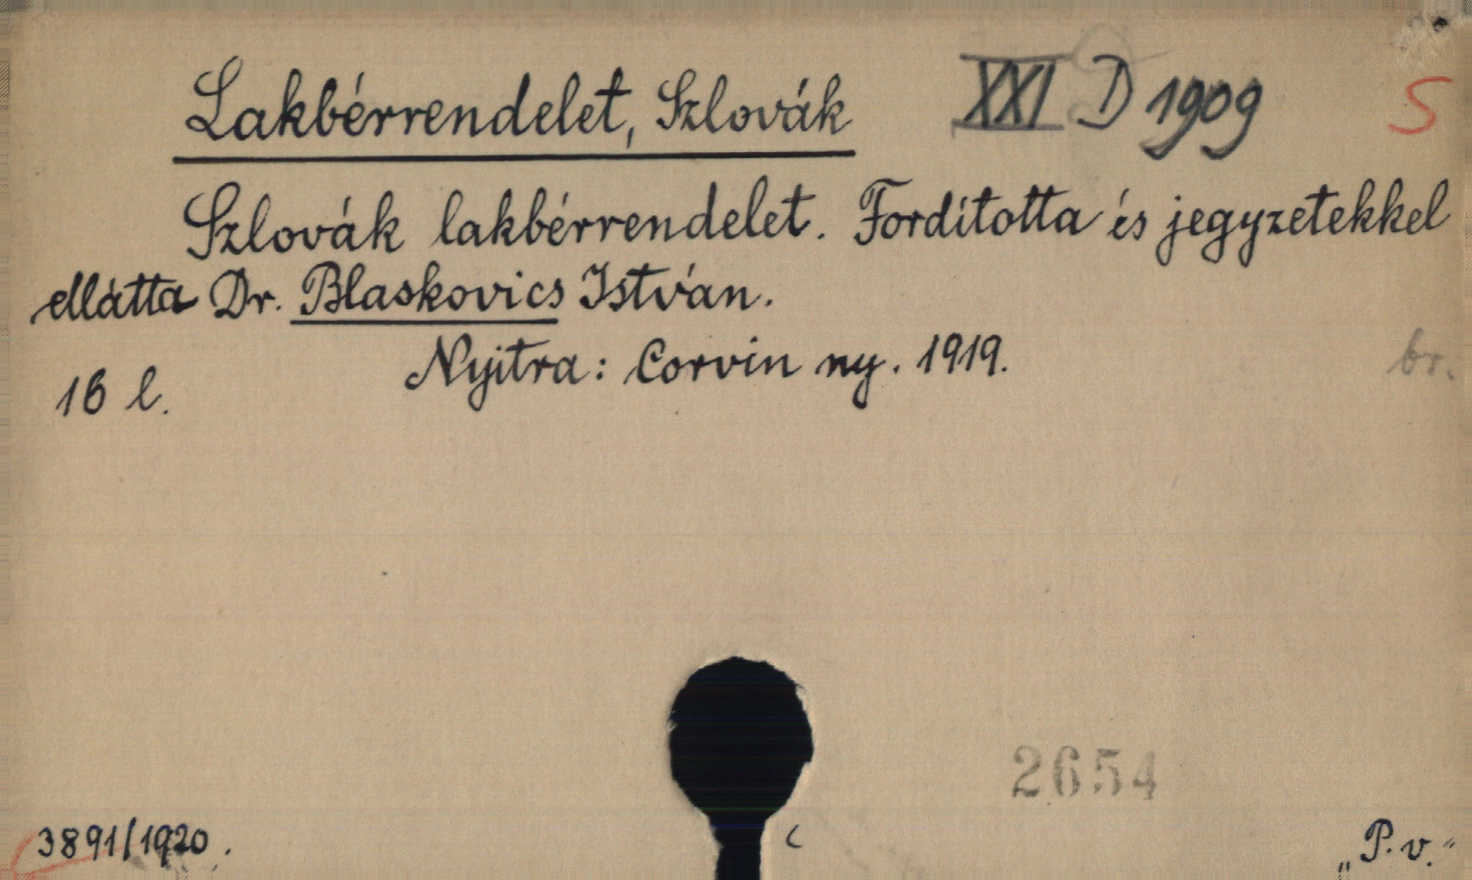 Lakbérrendelet, Szlovák XXI D 1909 S
Szlovák lakbérrendelet. Fordította és jegyzetekkel
ellátta Dr. Blaskovics István.
Nyitra: Corvin ny. 1919. br.
16 l.
2654
3891/1920. "P. v."